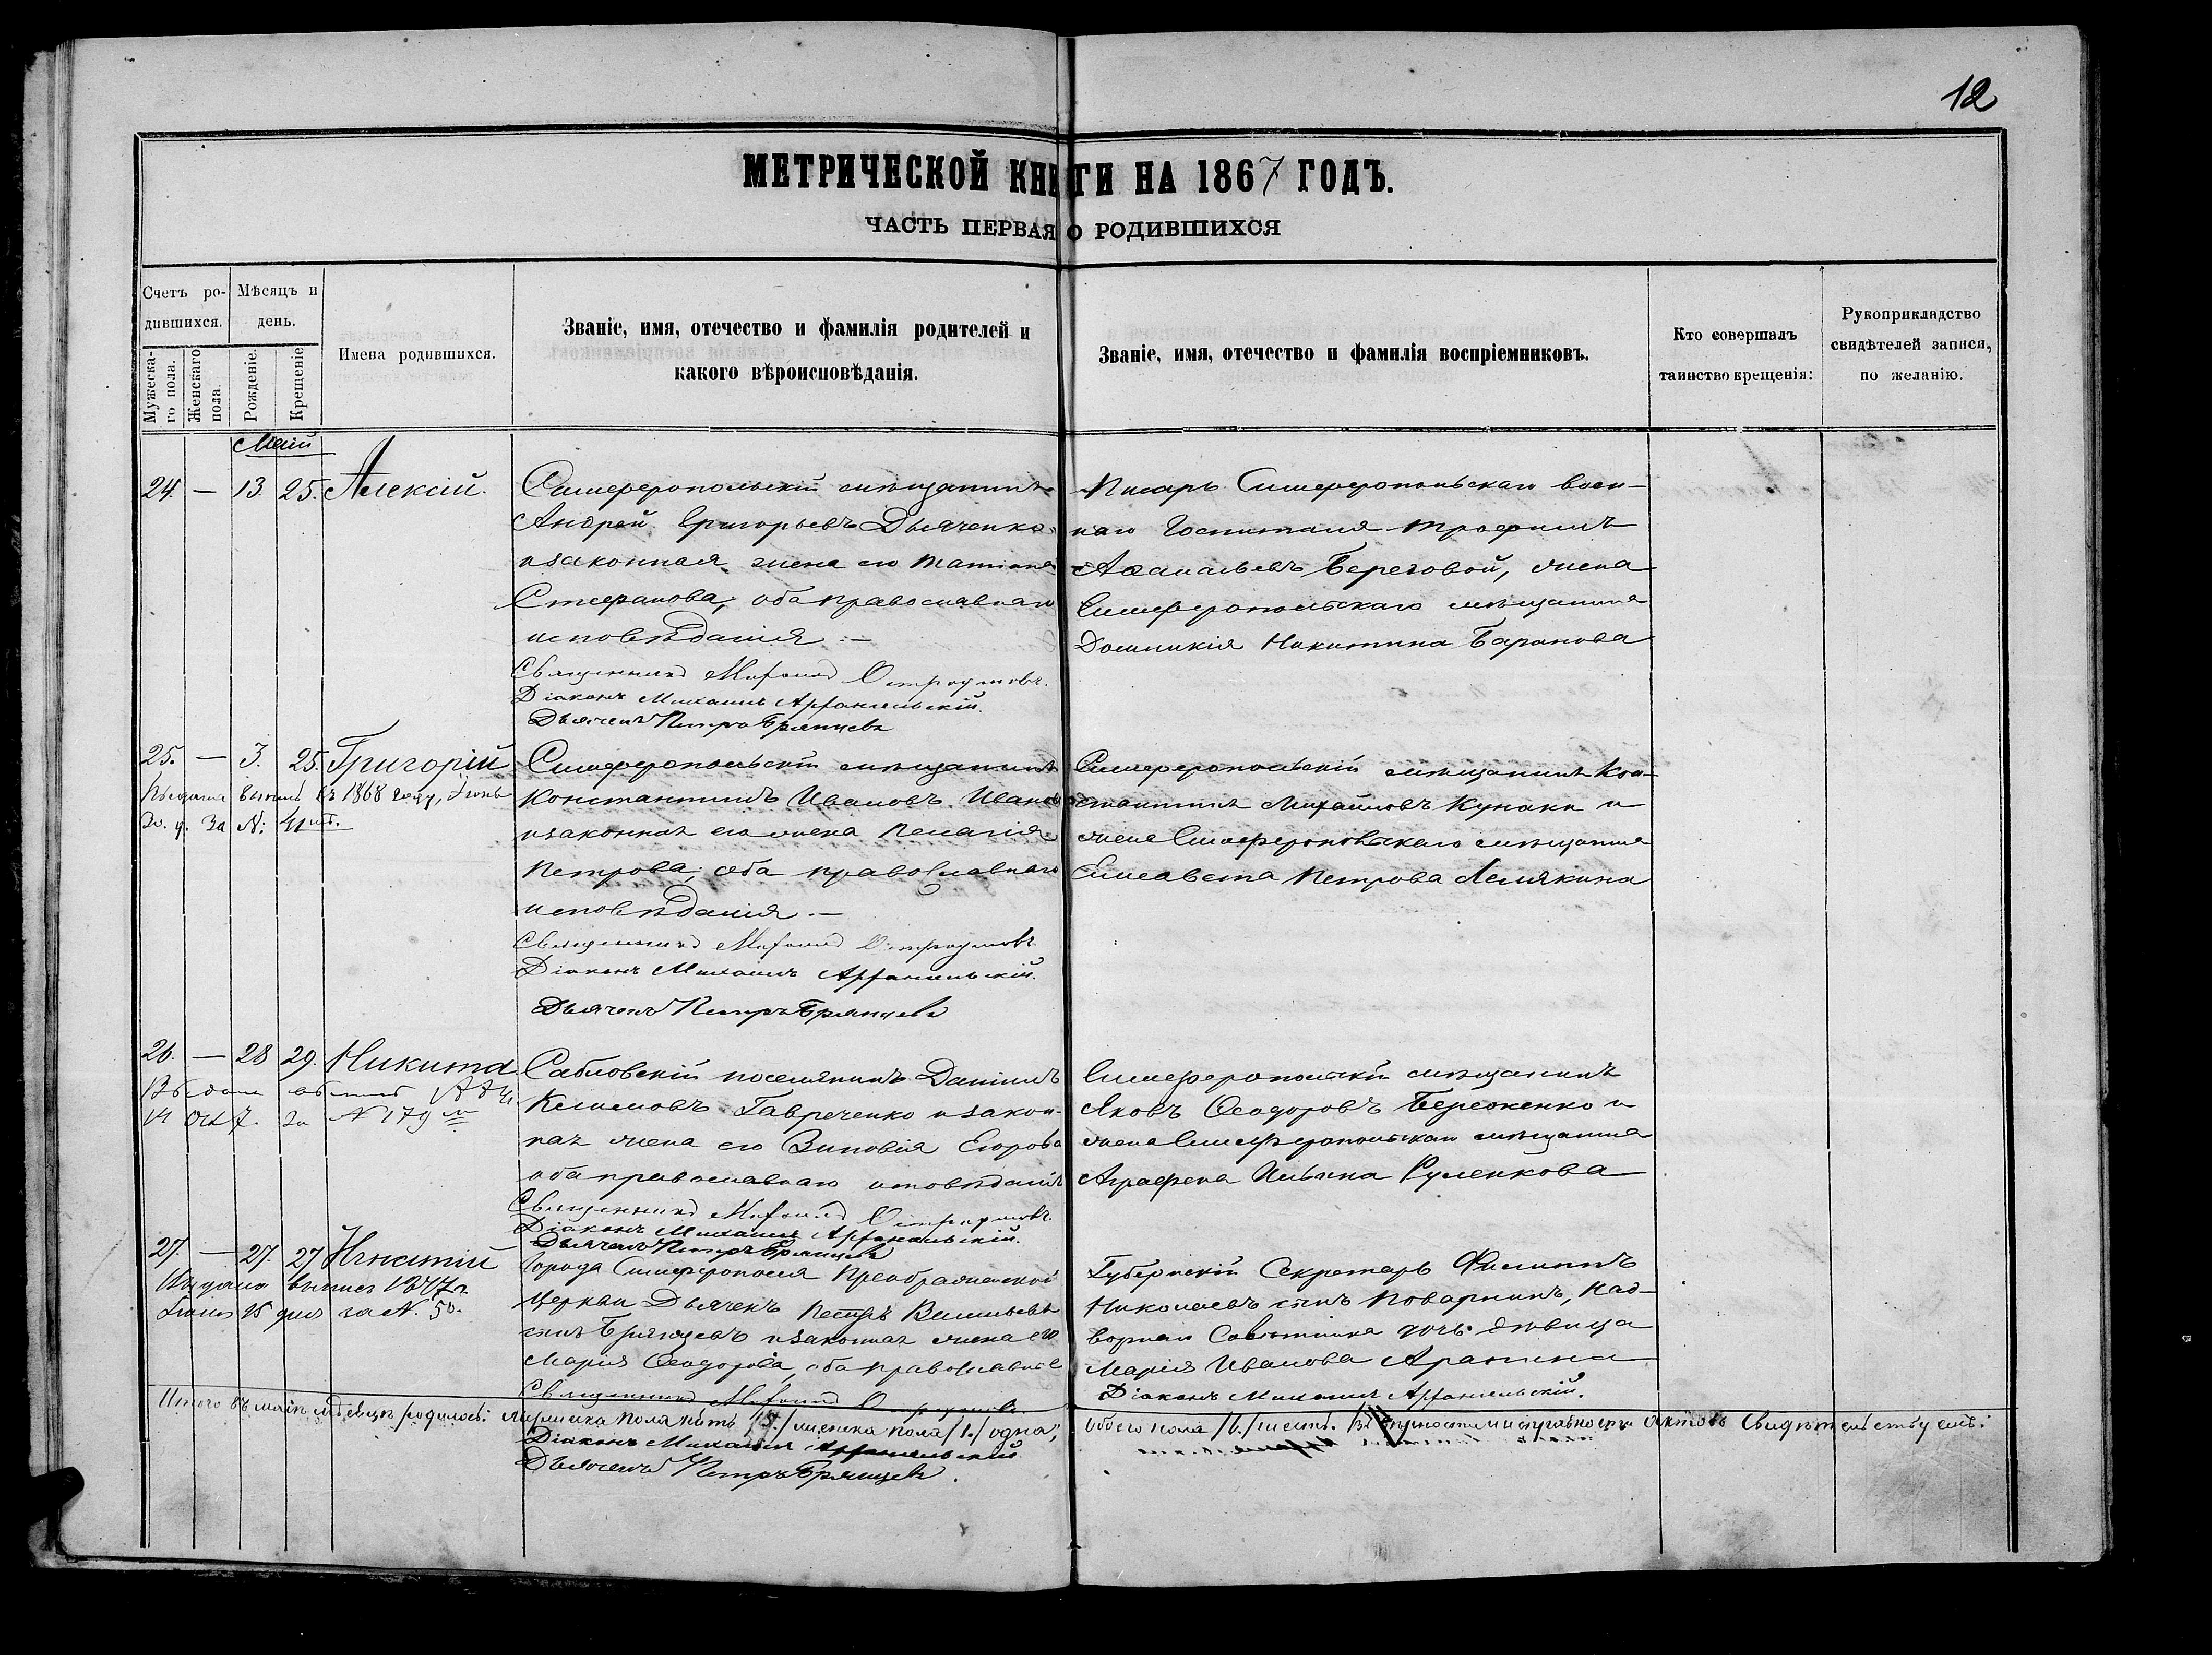 12
МЕТРИЧЕСКОЙ КНИГИ НА 1867 ГОДЪ.
ЧАСТЬ ПЕРВАЯ О РОДИВШИХСЯ
Счетъ ро-
дившихся.
Мужеска-
го пола.
Женскаго
пола.
Мѣсяцъ и
день.
Рожденіе.
Крещеніе
Имена родившихся.
Званіе, имя, отечество и фамилія родителей и
какого вѣроисповѣданія.
Званіе, имя, отечество и фамилія воспріемниковъ.
Кто совершалъ
таинство крещенія:
Рукоприкладство
свидѣтелей записи,
по желанію.
Май
24. — 13. 25. Алексій.
Симферопольскій мѣщанинъ
Андрей Григорьевъ Дьяченко
и законная жена его Татіана
Стефанова, оба православнаго
исповѣданія. —
Священникъ
Діаконъ Михаилъ Архангельскій.
Дьячекъ Петръ Брянцевъ
Писарь Симферопольскаго воен-
наго Госпиталя Трофимъ
Аѳанасьевъ Береговой, жена
Симферопольскаго мѣщанина
Домникія Никитина Баранова
25. — 3. 25. Григорій
выпись въ 1868 году, Іюнь
30. д. за №: 41
Симферопольскій мѣщанинъ
Константинъ Ивановъ Ивановъ
и законная его жена Пелагія
Петрова, оба православнаго
исповѣданія. —
Священникъ
Діаконъ Михаилъ Архангельскій.
Дьячекъ Петръ Брянцевъ
Симферопольскій мѣщанинъ Кон-
стантинъ Михайловъ Кунаки и
жена Симферопольскаго мѣщанина
Елисавета Петрова Лемякина
26. — 28 29. Никита.
№ 179
Сабловскій поселянинъ Даніилъ
Климовъ Гавреченко и закон-
ная жена его Зиновія Егорова
оба православнаго исповѣданія
Священникъ
Діаконъ Михаилъ Архангельскій.
Дьячекъ Петръ Брянцевъ
Симферопольскій мѣщанинъ
Яковъ Ѳеодоровъ Береженко и
жена Симферопольскаго мѣщанина
Аграфена Ильина Руленкова
27. — 27. 27 Игнатій
Выдана выпись
дня за №. 50.
Города Симферополя Преображенской
Церкви Дьячекъ Петръ Васильевъ
сынъ Брянцевъ и законная жена его
Марія Ѳеодорова, оба православные
Священникъ
Діаконъ Михаилъ Архангельскій
Дьячекъ Петръ Брянцевъ.
Губернскій Секретарь Филиппъ
Николаевъ сынъ Поварнинъ, Над-
ворнаго Совѣтника дочь дѣвица
Марія Иванова
Діаконъ Михаилъ Архангельскій.
Итого въ маѣ мѣсяцѣ родилось: мужеска пола пять /5./ женска пола /1./ одна, обоего пола /6./ шесть. актовъ свидѣтельствуемъ: